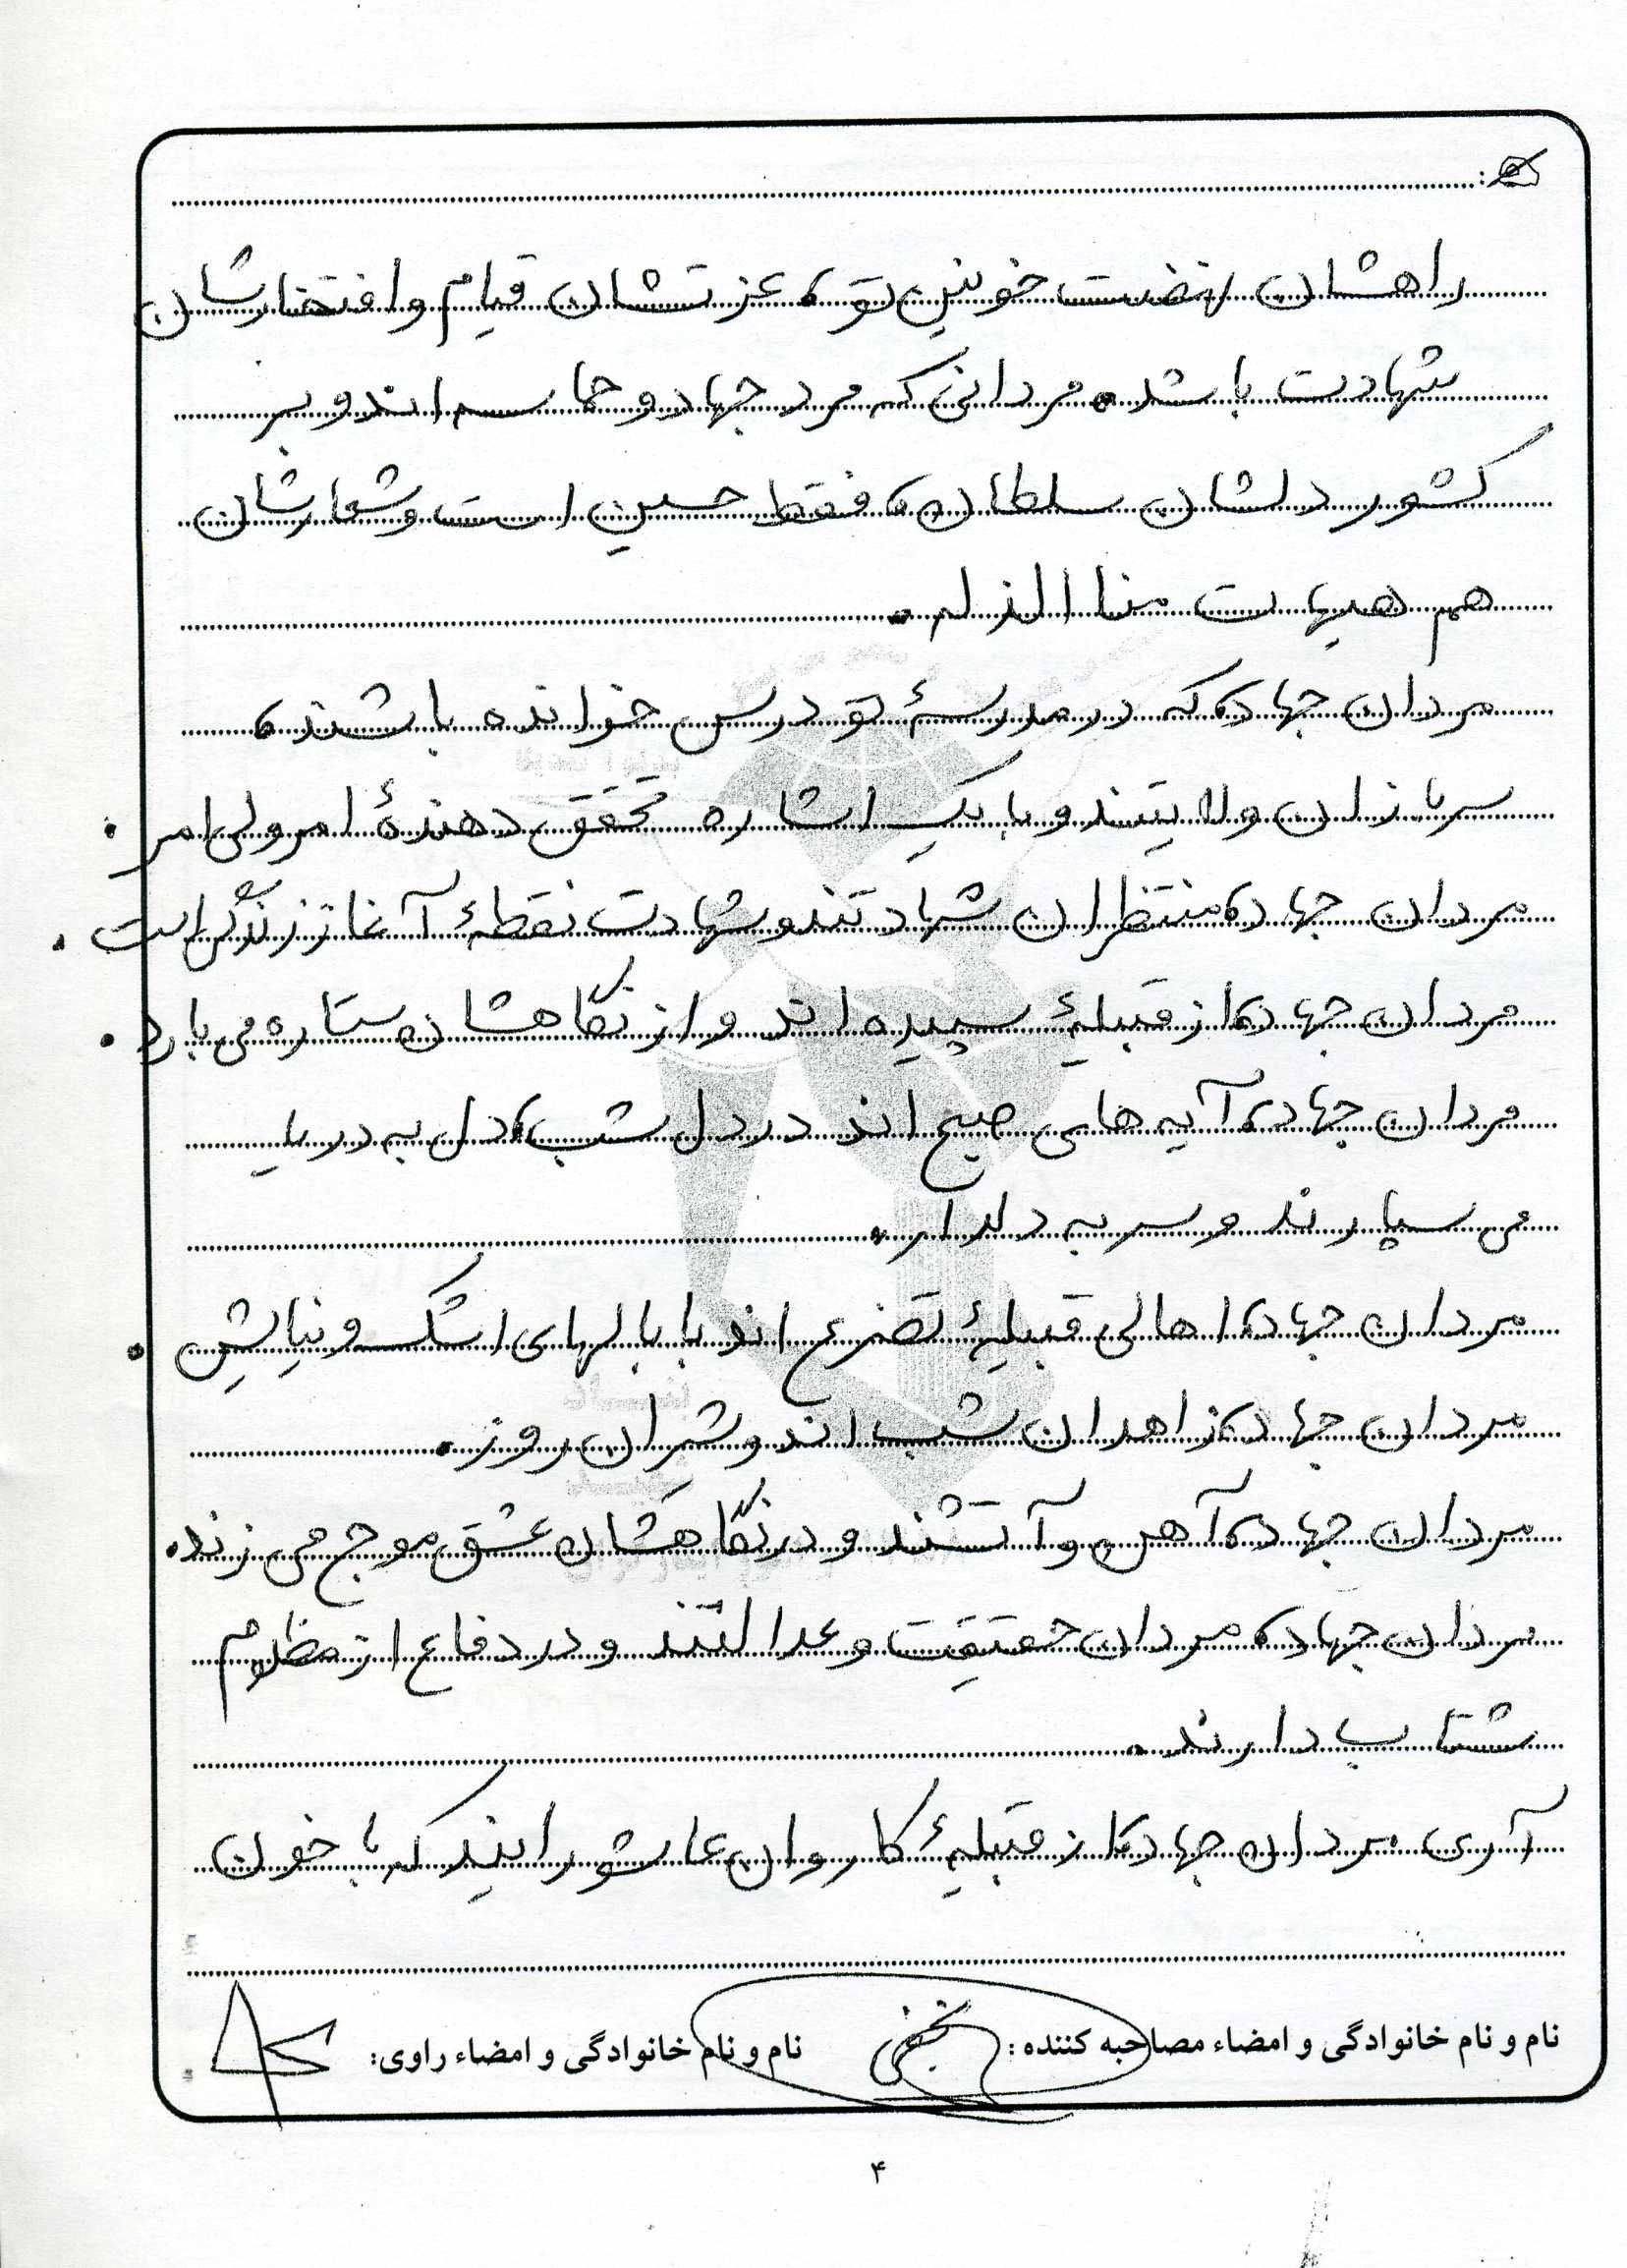 راهشان نهضت خونین تو، عزتشان قیام و افتخارشان
شهادت باشد. مردانی که مرد جهاد و حماسه اند و بر
کشور دلشان سلطان، فقط حسین است و شعارشان
هم هیهات منا الذله.
مردان جهاد، که در مدرسهٔ تو درس خوانده باشند،
سربازان ولایتند و با یک اشاره تحقق دهندهٔ امر ولی امر.
مردان جهاد، منتظران شهادتند و شهادت نقطهٔ آغاز زندگی است.
مردان جهاد، از قبیلهٔ سپیده اند و از نگاهشان ستاره می بارد.
مردان جهاد، آیه های صبح اند در دل شب، دل به دریا
می سپارند و سر به دلدار.
مردان جهاد، اهالی قبیلهٔ تضرع اند با بالهای اشک و نیایش.
مردان جهاد، زاهدان شب اند و شیران روز.
مردان جهاد، آهن و آتشند و در نگاهشان عشق موج می زند.
مردان جهاد، مردان حقیقت و عدالتند و در دفاع از مظلوم
شتاب دارند.
آری مردان جهاد، از قبیلهٔ کاروان عاشورایند که با خون
نام و نام خانوادگی و امضاء مصاحبه کننده: نام و نام خانوادگی و امضاء راوی:
۴